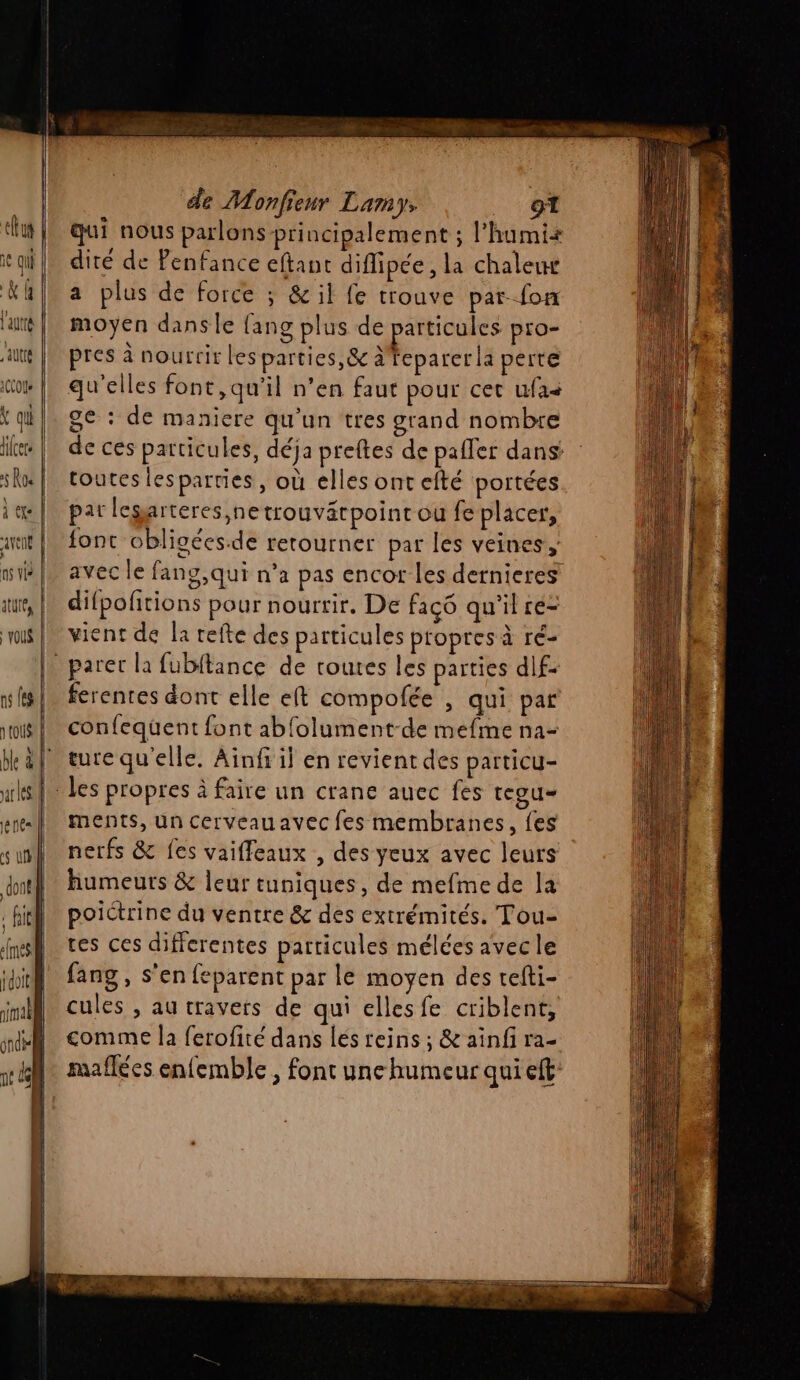 de Monſieur Lamy. 91
qui nous parlons principalement ; l'humi-
dité de l'enfance eſtant diſſipée, la chaleur
a plus de force ; & il ſe trouve par ſon
moyen dans le ſang plus de particules pro-
pres à nourrir les parties, & à reparer la perte
qu'elles font, qu'il n'en faut pour cet uſa-
ge : de maniere qu'un tres grand nombre
de ces particules, déja preſtes de paſſer dans
toutes les parties, où elles ont eſté portées
par les arteres, ne trouvāt point où ſe placer,
ſont obligées de retourner par les veines,
avec le ſang, qui n'a pas encor les dernieres
diſpoſitions pour nourrir. De façõ qu'il re-
vient de la reſte des particules propres à ré-
parer la ſubſtance de toutes les parties dif-
ferentes dont elle eſt compoſée , qui par
conſequent ſont abſolument de meſme na-
ture qu'elle. Ainſi il en revient des particu-
les propres à faire un crane auec ſes tegu-
ments, un cerveau avec ſes membranes, ſes
nerfs & ſes vaiſſeaux , des yeux avec leurs
humeurs & leur tuniques, de meſme de la
poictrine du ventre & des extrémités. Tou-
tes ces differentes particules mélées avec le
ſang, s'en ſeparent par le moyen des teſti-
cules , au travers de qui elles ſe criblent,
comme la ſeroſité dans les reins ; & ainſi ra-
maſſées enſemble, font une humeur qui eſt